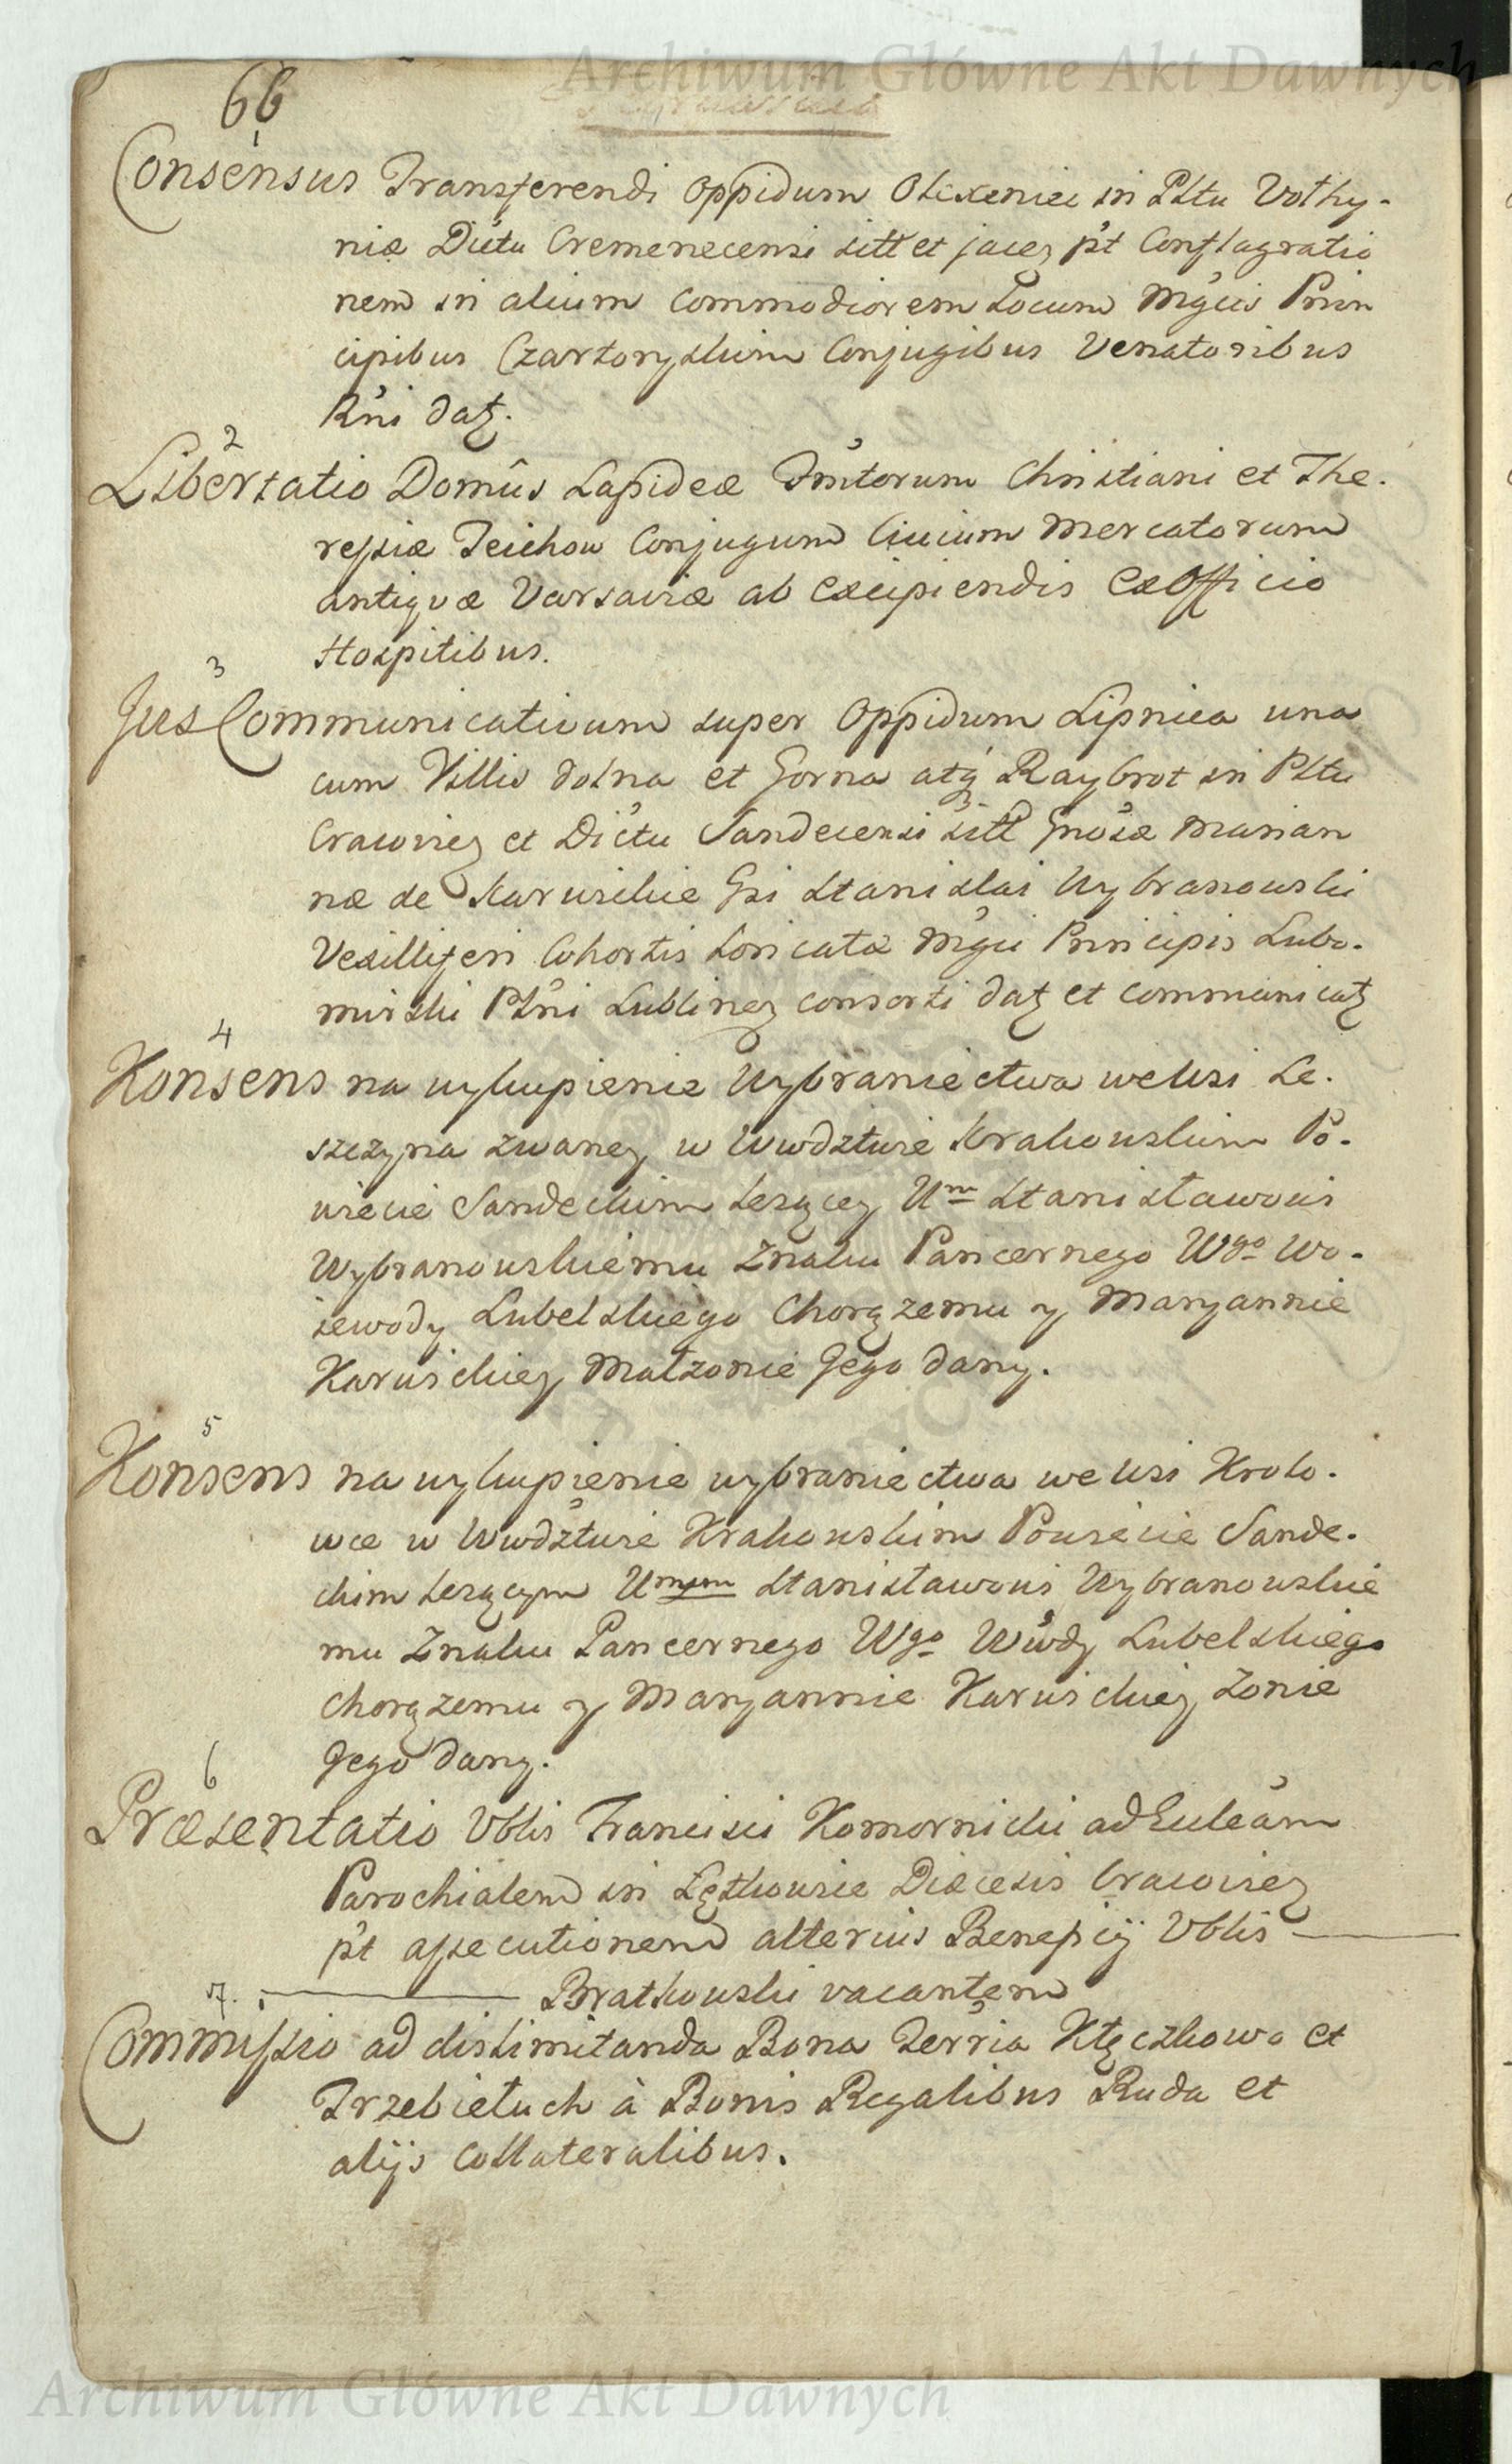 Archiwum Główne Akt Dawnych
66
1
Consensus Transferendi Oppidum Olexeniec in Pltu Volhy-
niæ Dictu Cremenecensi sitt et jacen pt Conflagratio
nem in alium Commodiorem Locum Mgcis Prin
cipibus Czartoryskim Conjugibus Venatoribus
Rni datt.
2
Libertatio Domûs Lapideæ Fmtorum Christiani et The-
ressiæ Teichow Conjugum Civium Mercatorum
antiquæ Varsaviæ ab Excipiendis Ex Officio
Hospitibus.
3
Jus Communicativum super Oppidum Lipnica una
cum Villis dolna et Gorna atq Raybrot in Pltu
Cracovien et Dictu Sandecensi sitt Gnosæ Marian
næ de Karwickie Gsi Stanislai Wybranowski
Vexilliferi Cohortis Loricatæ Mgci Principis Lubo-
mirski Plni Lublinen consorti datt et communicatt
4
Konsens na wykupienie Wybraniectwa we Wsi Le-
szczyna zwaney w Wwdztwie Krakowskim Po-
wiecie Sandeckim Leżącey Um Stanisławowi
Wybranowskiemu Znaku Pancernego Wgo Wo-
iewody Lubelskiego Chorążemu y Maryannie
Karwickiey Małzonce Jego dany.
5
Konsens na wykupienie wybraniectwa we Wsi Krolo-
wce w Wwdztwie Krakowskim Powiecie Sande-
ckim Leżącym Umm Stanisławowi Wybranowskie
mu Znaku Pancernego Wgo Wwdy Lubelskiego
Chorążemu y Maryannie Karwickiey Zonie
Jego dany.
6
Præsentatio Vblis Francisci Komornicki ad Eccleam
Parochialem in Łętkowie Diæcesis Cracovien
pt assecutionem alterius Beneficij Vblis
Bratkowski vacantem
7.
Commissio ad dislimitanda Bona Terria Kłęczkowo et
Trzebiełuch à Bonis Regalibus Ruda et
alijs Collateralibus.
Archiwum Główne Akt Dawnych